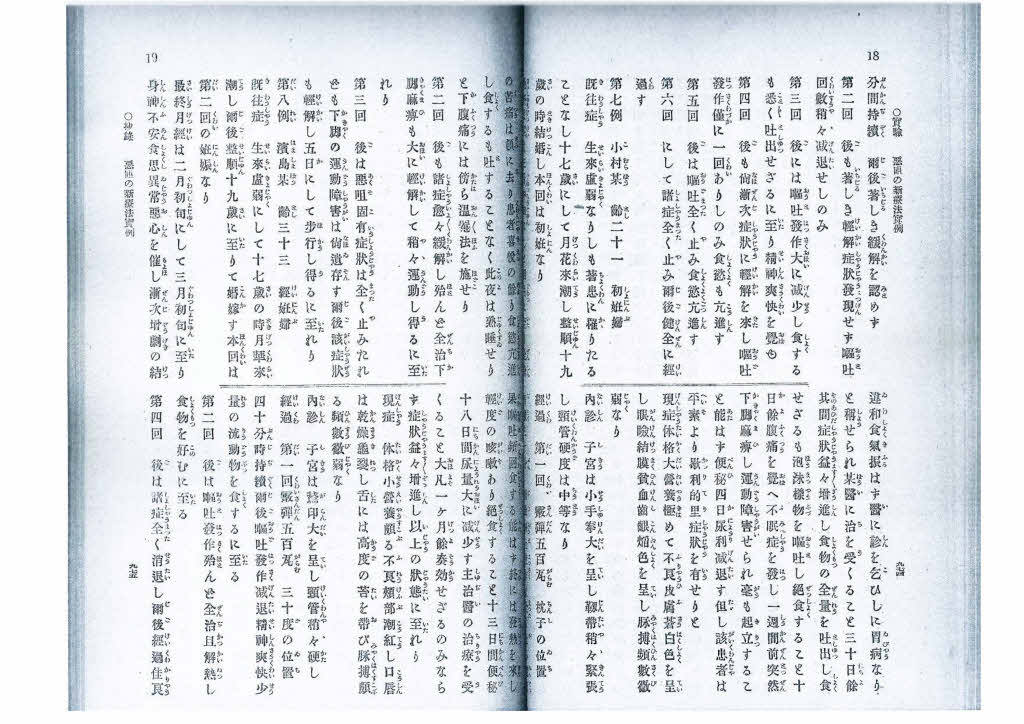 18
〇實驗　惡阻の新療法實例
九四
分間持續　爾後著しき緩解を認めす
第二回　後も著しき輕解症狀發現せす嘔吐
回數稍々减退せしのみ
第三回　後には嘔吐發作大に减少し食する
も悉く吐出せさるに至り精神爽快を覺ゆ
第四回　後も尙漸次症狀に輕解を來し嘔吐
發作僅に一回ありしのみ食慾も亢進す
第五回　後は嘔吐全く止み食慾亢進す
第六回　にして諸症全く止み爾後健全に經
過す
第七例　小村某　齡二十一　初姙婦
既往症　生來虛弱なりしも著患に罹りたる
ことなし十七歲にして月花來潮し整順十九
歲の時結婚し本回は初姙なり
違和食氣振はす醫に診を乞ひしに胃病なり
と稱せられ某醫に治を受くること三十日餘
其間症狀益々增進し食物の全量を吐出し食
せさるも泡沫樣物を嘔吐し絕食すること十
日餘腹痛を覺へ不眠症を發し一週間前突然
下脚麻痺し運動障害せられ毫も起立するこ
と能はす便秘四日尿利减退す但し該患者は
平素より歇利的里症狀を有せりと
現症　體格大營養極めて不良皮膚蒼白色を呈
し眼瞼結膜貧血齒齦焔色を呈し脈搏頻數微
弱なり
內診　子宮は小手拳大を呈し靱帶稍々緊張
し頸管硬度は中等なり
經過　第一回　震彈五百瓦　枕子の位置
19
〇抄錄　惡阻の新療法實例
九五
の苦痛は頓に去り患者喜悅の餘り食慾亢進
し食するも吐することなく此夜は熟睡せり
と下腹痛には傍ら溫罨法を施せり
第二回　後も諸症愈々緩解し殆んと全治下
脚麻痺も大に輕解して稍々運動し得るに至
れり
第三回　後は惡阻固有症狀は全く止みたれ
とも下脚の運動障害は尙遺存す爾後該症狀
も輕解し五日にして步行し得るに至れり
第八例　濱島某　齡三十三　經姙婦
既往症　生來虛弱にして十七歲の時月華來
潮し爾後整順十九歲に至りて婚嫁す本回は
第二回の姙娠なり
最終月經は二月初旬にして三月初旬に至り
身神不安食思異常惡心を催し漸次增劇の結
果嘔吐頻回食する能はす終には發熱を來し
輕度の咳嗽あり絕食すること十三日間便秘
十八日間尿量大に减少す主治醫の治療を受
くること大凡一ヶ月餘奏効せさるのみなら
す症狀益々增進し以上の狀態に至れり
現症　體格小營養頗る不良頰部潮紅し口唇
は乾燥龜裂し舌には高度の苔を帶ひ脈搏頗
る頻數微弱なり
內診　子宮は鵞卵大を呈し頸管稍々硬し
經過　第一回震彈五百瓦　三十度の位置
四十分時持續爾後嘔吐發作减退精神爽快少
量の流動物を食するに至る
第二回　後は嘔吐發作殆んと全治且解熱し
食物を好むに至る
第四回　後は諸症全く消退し爾後經過佳良